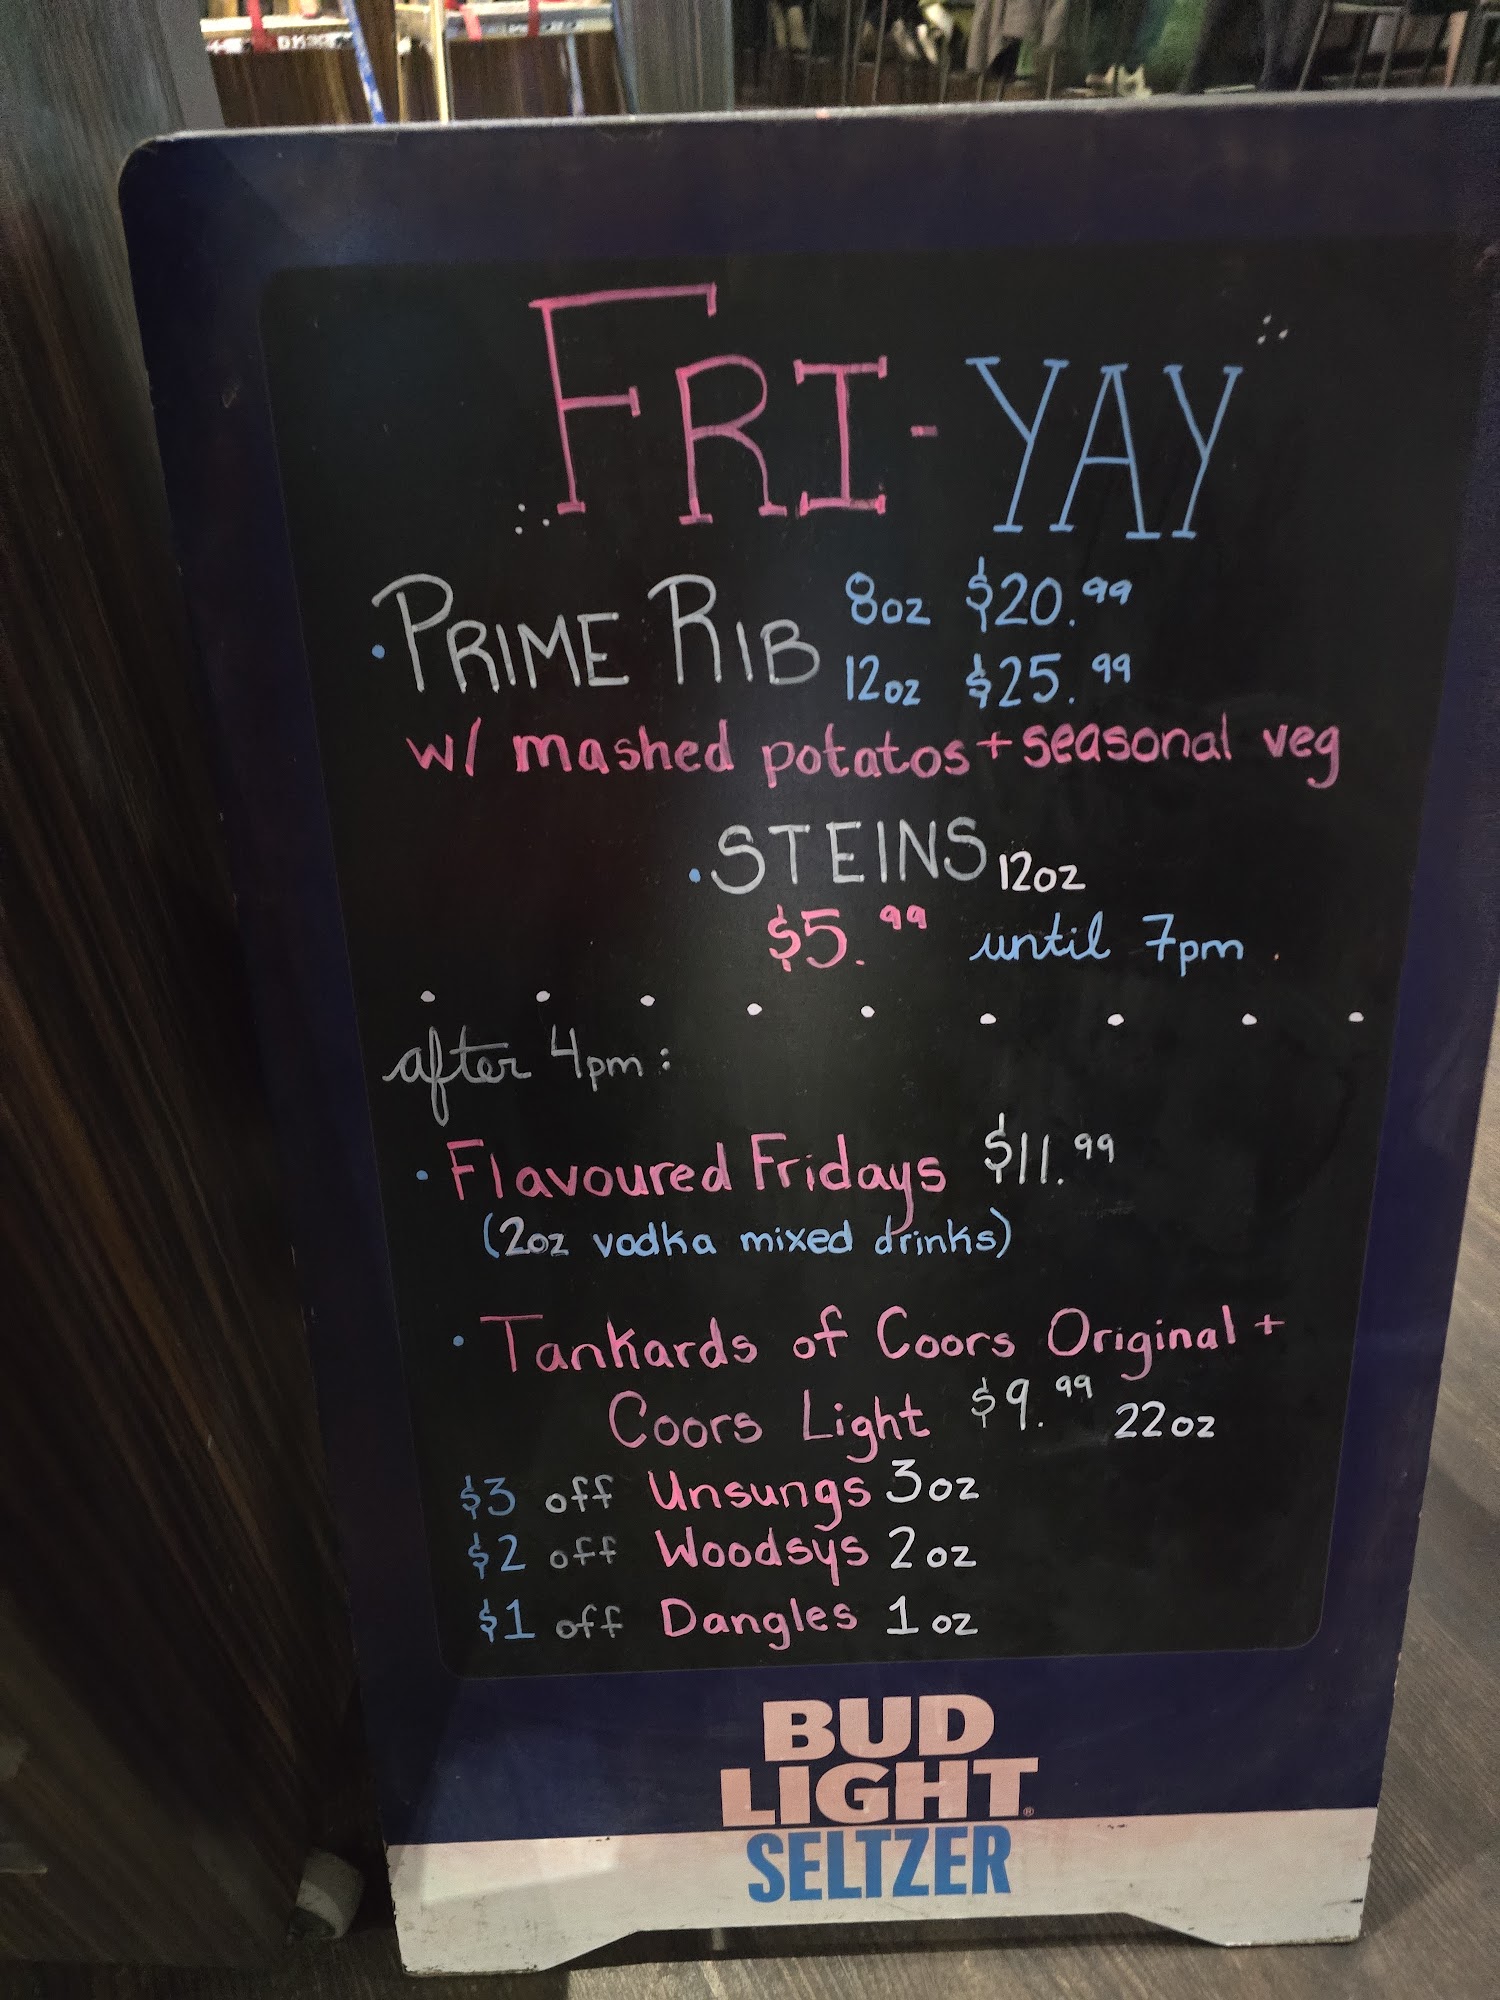 FRI-YAY
• PRIME RIB 8oz $20.99
12oz $25.99
w/ mashed potatos + seasonal veg
• STEINS 12oz
$5.99 until 7pm
after 4pm:
• Flavoured Fridays $11.99
(2oz vodka mixed drinks)
• Tankards of Coors Original +
Coors Light $9.99 22oz
$3 off Unsungs 3oz
$2 off Woodsys 2oz
$1 off Dangles 1oz
BUD
LIGHT®
SELTZER